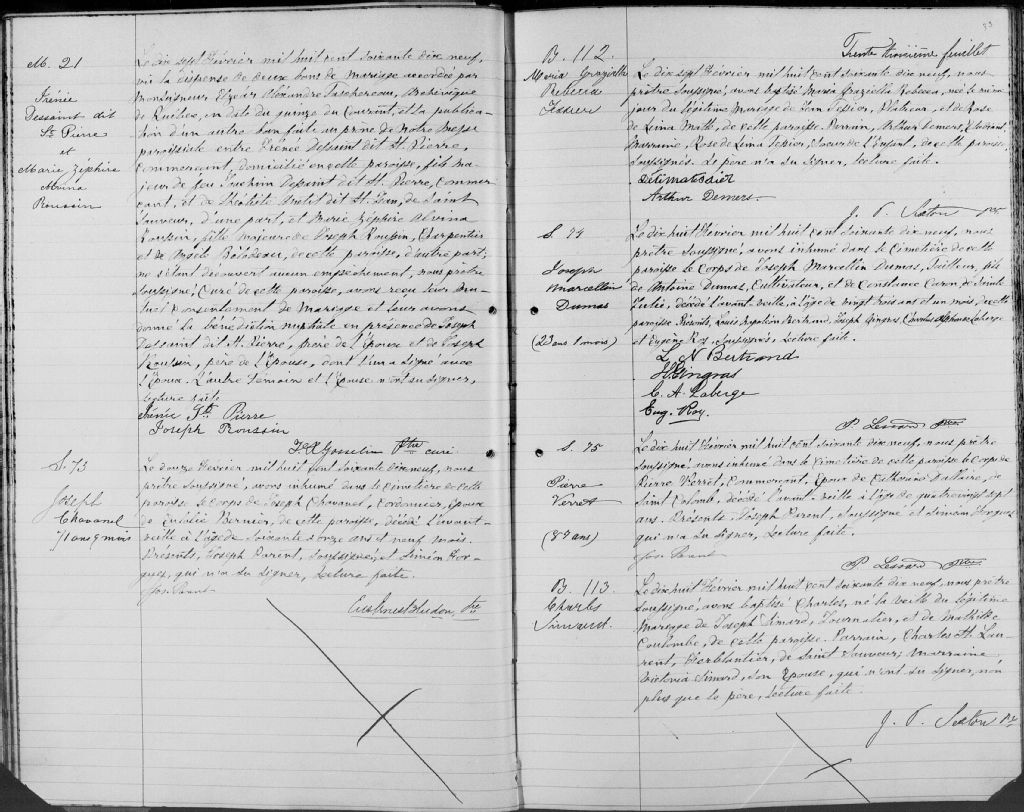 M. 21
Irénée
Dessaint dit
St. Pierre
et
Marie Zéphire
Alvina
Roussin
Le dix sept Février mil huit cent soixante dix neuf,
vu la dispense de deux bans de Mariage accordée par
Monseigneur Elzéar Alexandre Taschereau, Archevêque
de Québec, en date du quinze du courant, et la publica-
tion d'un autre ban faite au prône de notre Messe
paroissiale entre Irénée Dessaint dit St. Pierre,
Commerçant domicilié en cette paroisse, fils ma-
jeur de feu Joachim Dessaint dit St. Pierre, Commer
çant, et de dit St. Jean, de Saint
Sauveur, d'une part, et Marie Zéphire Alvina
Roussin, fille majeure de Joseph Roussin, Charpentier
et de Angèle Bilodeau, de cette paroisse, d'autre part;
ne s'étant découvert aucun empêchement, nous prêtre
soussigné, Curé de cette paroisse, avons reçu leur mu-
tuel consentement de Mariage et leur avons
donné la bénédiction nuptiale en présence de Joseph
Dessaint dit St. Pierre, frère de l'époux et de Joseph
Roussin, père de l'Epouse, dont l'un a signé avec
l'Epoux. L'autre témoin et l'Epouse n'ont su signer,
lecture faite
Irénée St. Pierre
Joseph Roussin
Gosselin Ptre curé.
S. 73
Joseph
Chavanel
71 ans 9 mois
Le douze Février mil huit cent soixante dix neuf, nous
prêtre soussigné, avons inhumé dans le Cimetière de cette
paroisse le corps de Joseph Chavanel, Cordonnier, Epoux
de Eulalie Bernier, de cette paroisse, décédé l'avant-
veille à l'âge de soixante onze ans et neuf mois.
Présents, Joseph Parent, soussigné, et Siméon For-
gues, qui n'a su signer, lecture faite.
Jos. Parent
Ptre
33
Trente troisième feuillet
B. 112.
Maria Graziella
Rebecca
Tessier
Le dix sept Février mil huit cent soixante dix neuf, nous
prêtre soussigné, avons baptisé Maria Graziella Rebecca, née le même
jour du légitime Mariage de Jean Tessier, et de Rose
de Lima Matte, de cette paroisse. Parrain, Arthur Demers, Etudiant,
Marraine, Rose de Lima Tessier, soeur de l'Enfant, de cette paroisse,
soussignés. Le père n'a su signer, lecture faite.
Arthur Demers.
J. P. Sexton Ptre
S. 74
Joseph
Marcellin
Dumas
(23 ans 1 mois)
Le dix huit Février mil huit cent soixante dix neuf, nous
prêtre soussigné, avons inhumé dans le Cimetière de cette
paroisse le Corps de Joseph Marcellin Dumas, Tailleur, fils
de Antoine Dumas, Cultivateur, et de Constance Caron, de Sainte
Julie, décédé l'avant veille, à l'âge de vingt trois ans et un mois, de cette
paroisse. Présents, Louis Napoléon Bertrand, Joseph Gingras, Alphonse Laberge
et Eugène Roy, soussignés, lecture faite.
L. N Bertrand
J Gingras
C. A. Laberge
Eug. Roy.
P. Lessard Ptre
S. 75
Pierre
Verret
(87 ans)
Le dix huit Février mil huit cent soixante dix neuf, nous prêtre
soussigné, avons inhumé dans le cimetière de cette paroisse le corps de
Pierre Verret, Commerçant, Epoux de Catherine Dallaire, de
Saint Colomb, décédé l'avant-veille à l'âge de quatrevingt sept
ans. Présents Joseph Parent, soussigné et Siméon Forgues
qui n'a su signer, lecture faite.
Jos. Parent
P. Lessard Ptre
B. 113
Charles
Simard.
Le dix huit Février mil huit cent soixante dix neuf, nous prêtre
soussigné, avons baptisé Charles, né la veille du légitime
Mariage de Joseph Simard, Journalier, et de Mathilde
Coulombe, de cette paroisse. Parrain, Charles St. Lau-
rent, Ferblantier, de Saint Sauveur; Marraine
Victoria Simard, son Epouse, qui n'ont su signer, non
plus que le père, lecture faite.
J. P. Sexton Ptre